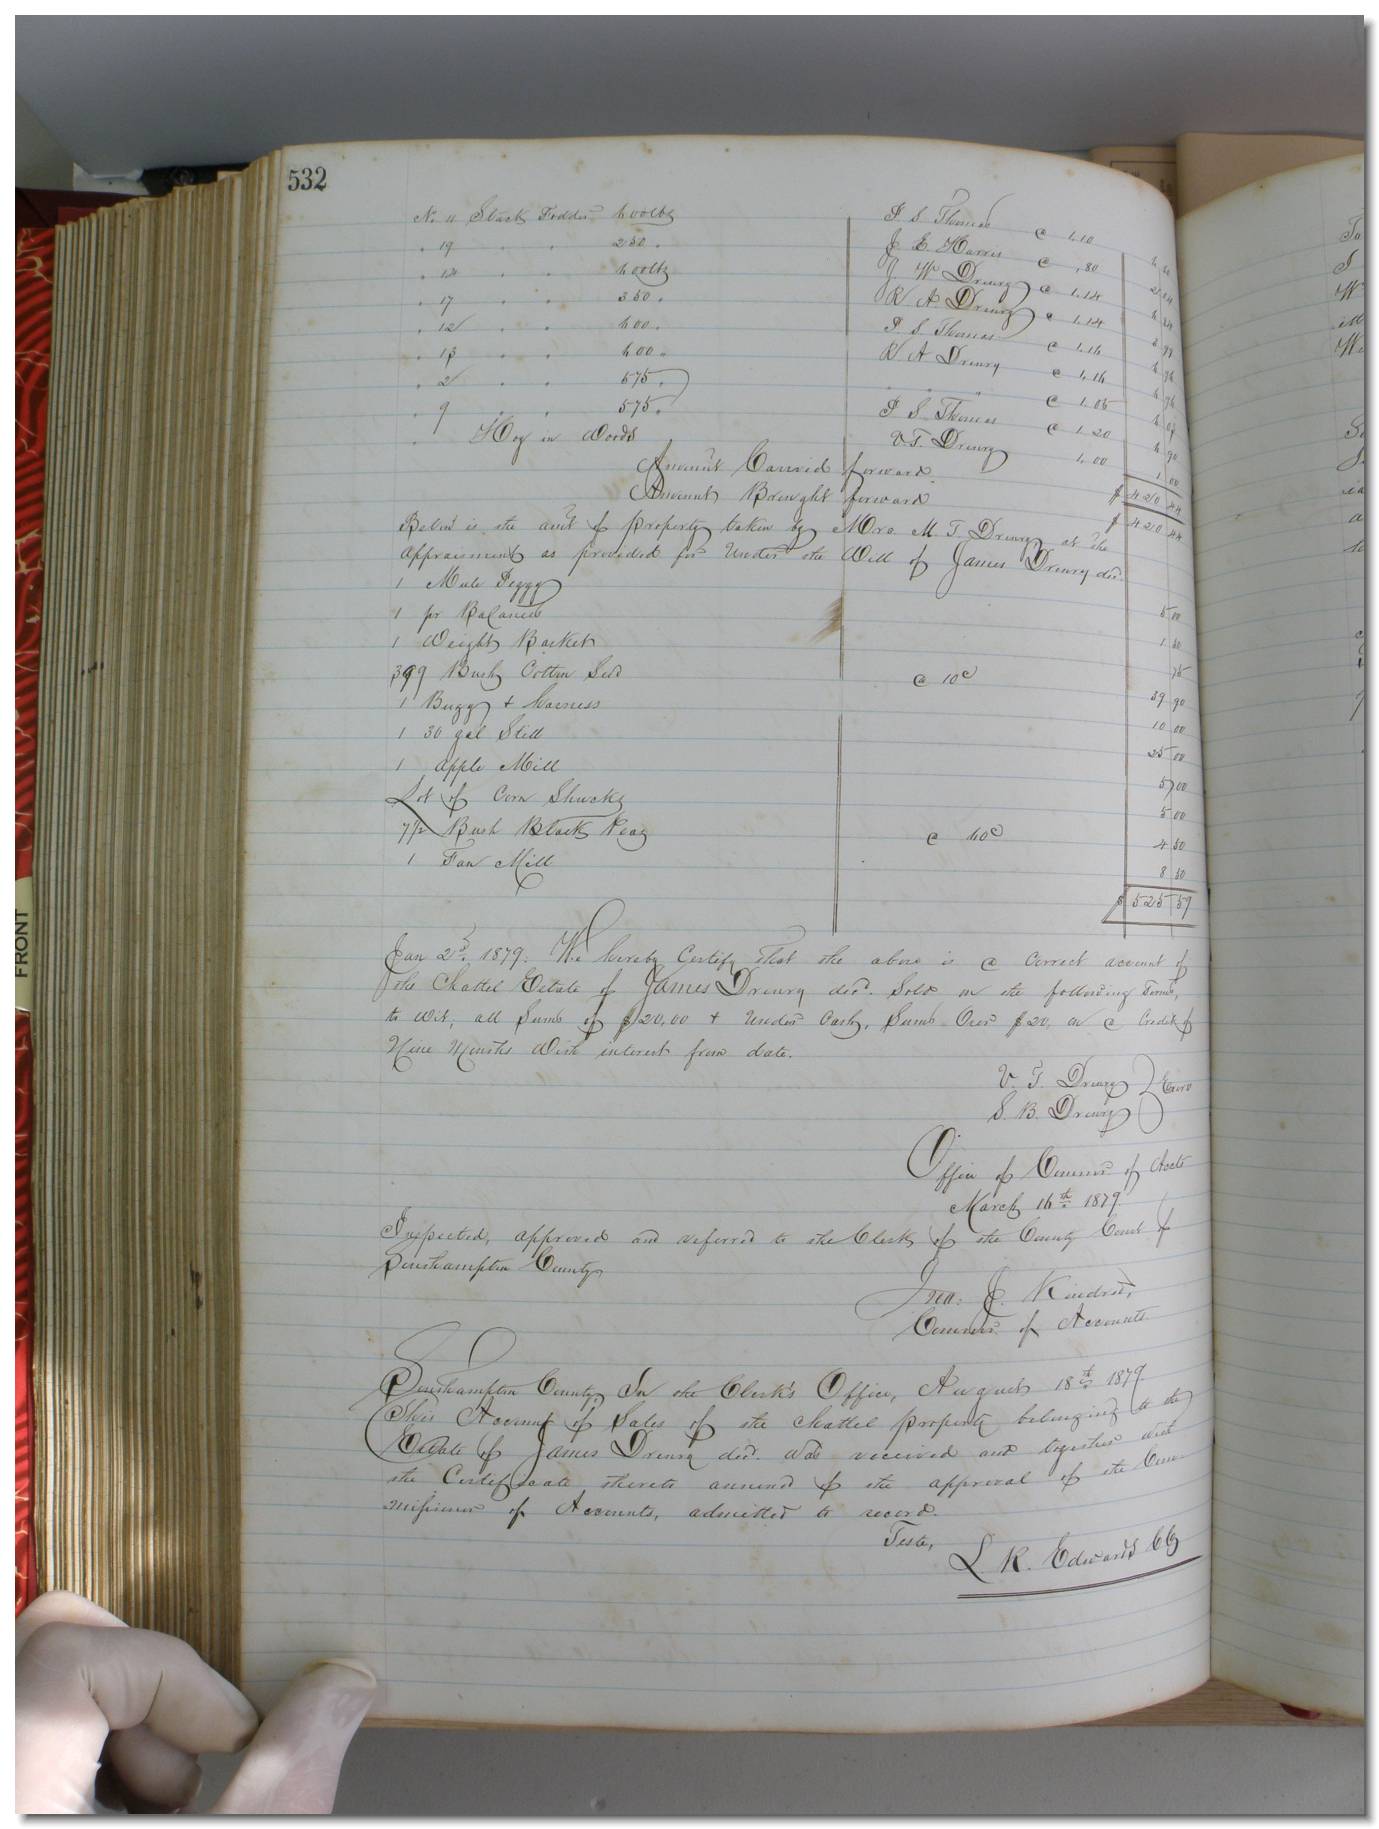 532
No. 11 Stack Fodder 400lbs P S Thomas @ 1.10 4 40
" 19 " " 280 " J E Harris @ .80 2 24
" 14 " " 400lbs J W Drewry @ 1.14
" 17 " " 350 " R A Drewry @ 1.14
" 12 " " 400 " P S Thomas @ 1.16
" 13 " " 400 " R A Drewry @ 1.16
" 2 " " 575 " " " " @ 1.05
" 9 " " 575 " P S Thomas @ 1.20
" Hog in Woods V. T. Drewry 1.00 1 00
Amount Carried forward $ 420 44
Amount Brought forward $ 420 44
Below is the amt of property taken by Mrs. M. T. Drewry at the
appraisment as provided for Under the Will of James Drewry decd.
1 Mule Peggy 5 00
1 pr Balances 1 50
1 Weight Basket 75
399 Bush Cotton Seed @ 10c 39 90
1 Buggy + harness 10 00
1 30 gal Still 25 00
1 apple Mill 5 00
Lot of Corn Shucks 5 00
7 1/2 Bush Black Peas @ 60c 4 50
1 Fan Mill 8 50
$ 525 59
Jan 2d. 1879. We hereby Certify that the above is a correct account of
the Chattel Estate of James Drewry decd. Sold on the following Terms,
to Wit, all Sums of $20.00 + Under Cash, Sums Over $20, on a Credit of
Nine Months With interest from date.
V. T. Drewry } Exors
S. B. Drewry
Office of Commr. of Accts
March 16th 1879.
Inspected, approved and referred to the Clerk of the County Court of
Southampton County
Jno: J. Kindred,
Commr. of Accounts
Southampton County In the Clerk's Office, August 18th 1879
This Account of Sales of the Chattel property belonging to the
Estate of James Drewry decd. was received and together with
the Certificate thereto annexed & the approval of the Com-
missioner of Accounts, admitted to record.
Teste,
L. R. Edwards CC
FRONT